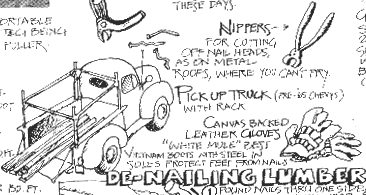 THESE DAYS.
ORTABLE
BEING
PULLER.
NIPPERS-
FOR CUTTING
OFF NAIL HEADS,
AS ON METAL
ROOFS, WHERE YOU CAN'T PRY.
PICK UP TRUCK
WITH RACK
CANVAS BACKED
LEATHER GLOVES
"WHITE MULE" BEST
VIETNAM BOOTS WITH STEEL IN
SOLES PROTECT FEET FROM NAILS
DE-NAILING LUMBER
POUND NAILS THRU ONE SIDE
BD. FT.